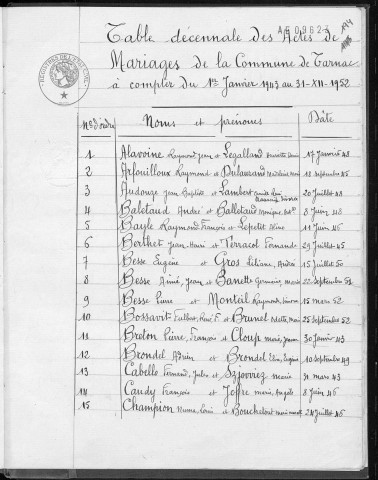 AE 0962-7
Table décennale des Actes de
Mariages de la Commune de Tarnac
à compter du 1er Janvier 1943 au 31-XII-1952
Nos d'ordre Noms et prénoms Date
1 Alavoine Raymond Jean et Legalland Denise 17 Janvier 48
2 Arfouilloux Raymond et 12 septembre 45
3 Audouze Jean Baptiste et Lambert 20 Juillet 48
4 Baletaud André et Balletaud Monique 8 Juin 48
5 Bayle Raymond François et Lepetit Aline 11 Juin 45
6 Berthet Jean Henri et Terracol Fernande 29 Juillet 45
7 Besse Eugène et Gros Liliane, André 15 Juillet 50
8 Besse Aimé, Jean et Banette Germaine, Marie 22 septembre 51
9 Besse Pierre et Monteil Raymonde, Simone 15 mars 52
10 Bossavit Albert, René F. et Brunel Odette, Marie 25 septembre 52
11 Breton Pierre, François et Cloup Marie, Jeanne 30 Janvier 43
12 Brondel Adrien et Brondel Eugénie 10 septembre 49
13 Cabelle Fernand, Jules et Marie 31 mars 43
14 Caudy François et Joffre Marie, Angèle 8 Juin 46
15 Champion Louis et Bouchefort 24 Juillet 46